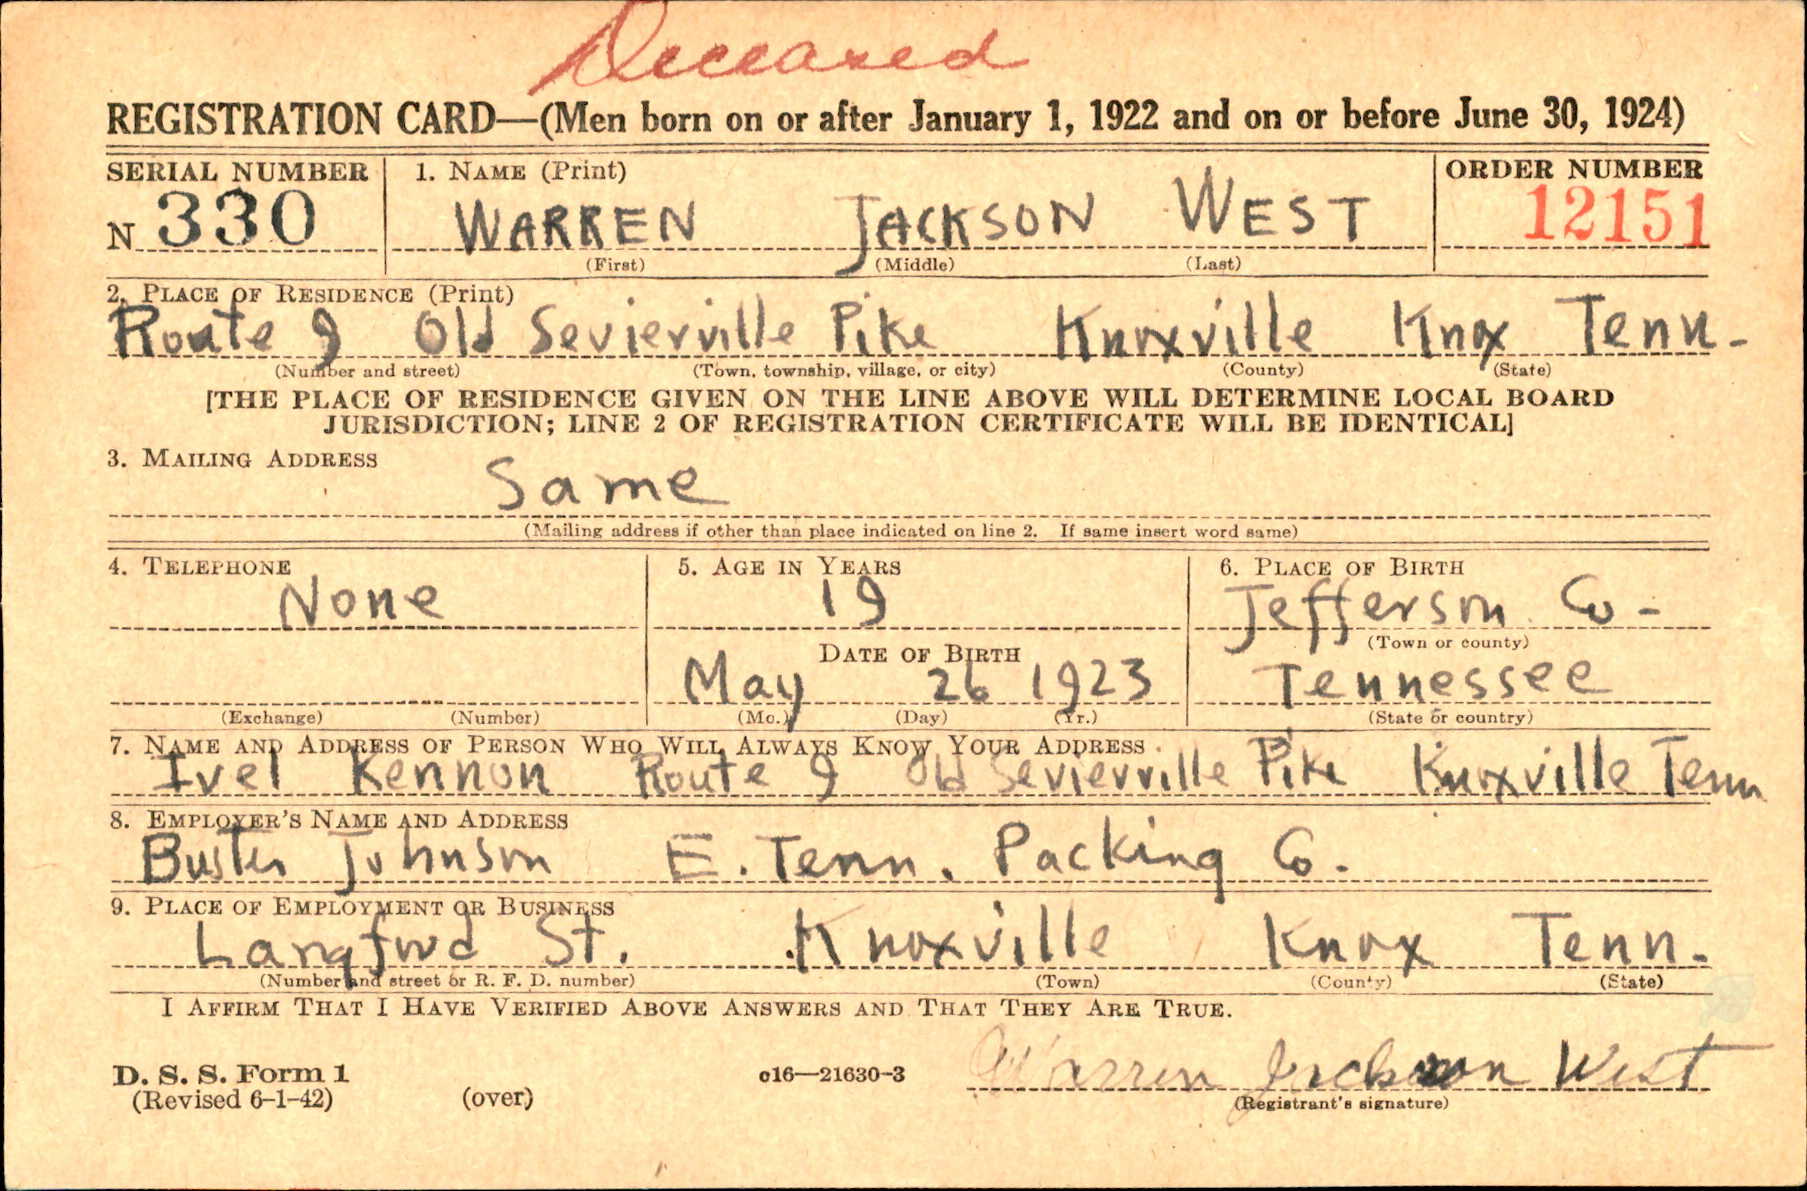 Deceased
REGISTRATION CARD—(Men born on or after January 1, 1922 and on or before June 30, 1924)
SERIAL NUMBER 1. NAME (Print) ORDER NUMBER
N 330 WARREN JACKSON WEST 12151
(First) (Middle) (Last)
2. PLACE OF RESIDENCE (Print)
Route 9 Old Sevierville Pike Knoxville Knox Tenn-
(Number and street) (Town, township, village, or city) (County) (State)
[THE PLACE OF RESIDENCE GIVEN ON THE LINE ABOVE WILL DETERMINE LOCAL BOARD
JURISDICTION; LINE 2 OF REGISTRATION CERTIFICATE WILL BE IDENTICAL]
3. MAILING ADDRESS
Same
(Mailing address if other than place indicated on line 2. If same insert word same)
4. TELEPHONE 5. AGE IN YEARS 6. PLACE OF BIRTH
None 19 Jefferson Co-
(Town or county)
DATE OF BIRTH
May 26 1923 Tennessee
(Exchange) (Number) (Mo.) (Day) (Yr.) (State or country)
7. NAME AND ADDRESS OF PERSON WHO WILL ALWAYS KNOW YOUR ADDRESS
Ivel Kennon Route 9 Old Sevierville Pike Knoxville Tenn
8. EMPLOYER'S NAME AND ADDRESS
Buster Johnson E. Tenn. Packing Co.
9. PLACE OF EMPLOYMENT OR BUSINESS
Langford St. Knoxville Knox Tenn.
(Number and street or R. F. D. number) (Town) (County) (State)
I AFFIRM THAT I HAVE VERIFIED ABOVE ANSWERS AND THAT THEY ARE TRUE.
Warren Jackson West
D. S. S. Form 1 c16—21630-3
(Revised 6-1-42) (over) (Registrant's signature)